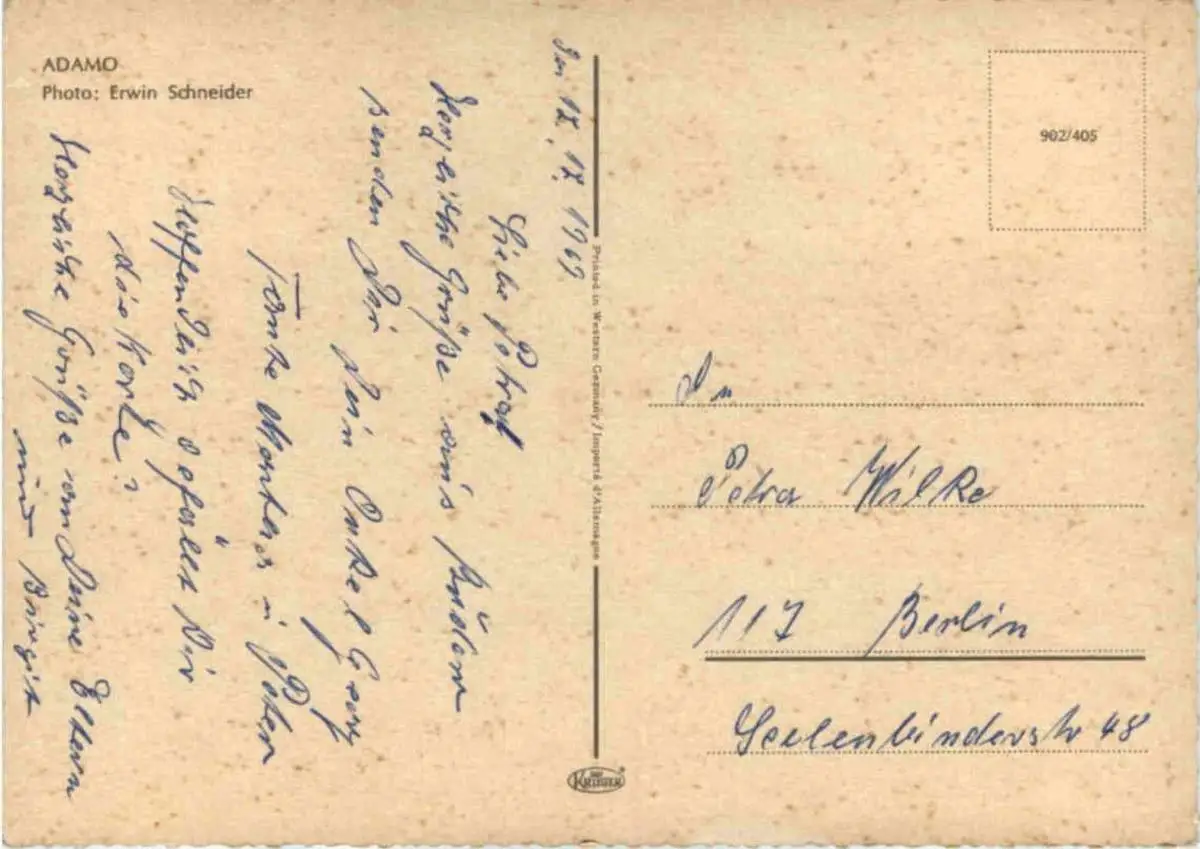 ADAMO
Photo: Erwin Schneider
Den 12.12.1969
Liebe Petra
Herzliche Grüße aus
senden Dir Dein Onkel Georg
Tante Martha u Peter
Hoffentlich gefällt Dir
die Karte?
Herzliche Grüße an Deine Eltern
und Birgit
Printed in Western Germany / Importé d'Allemagne
KRÜGER
902/405
An
Petra Wilke
117 Berlin
Seelenbinderstr 48